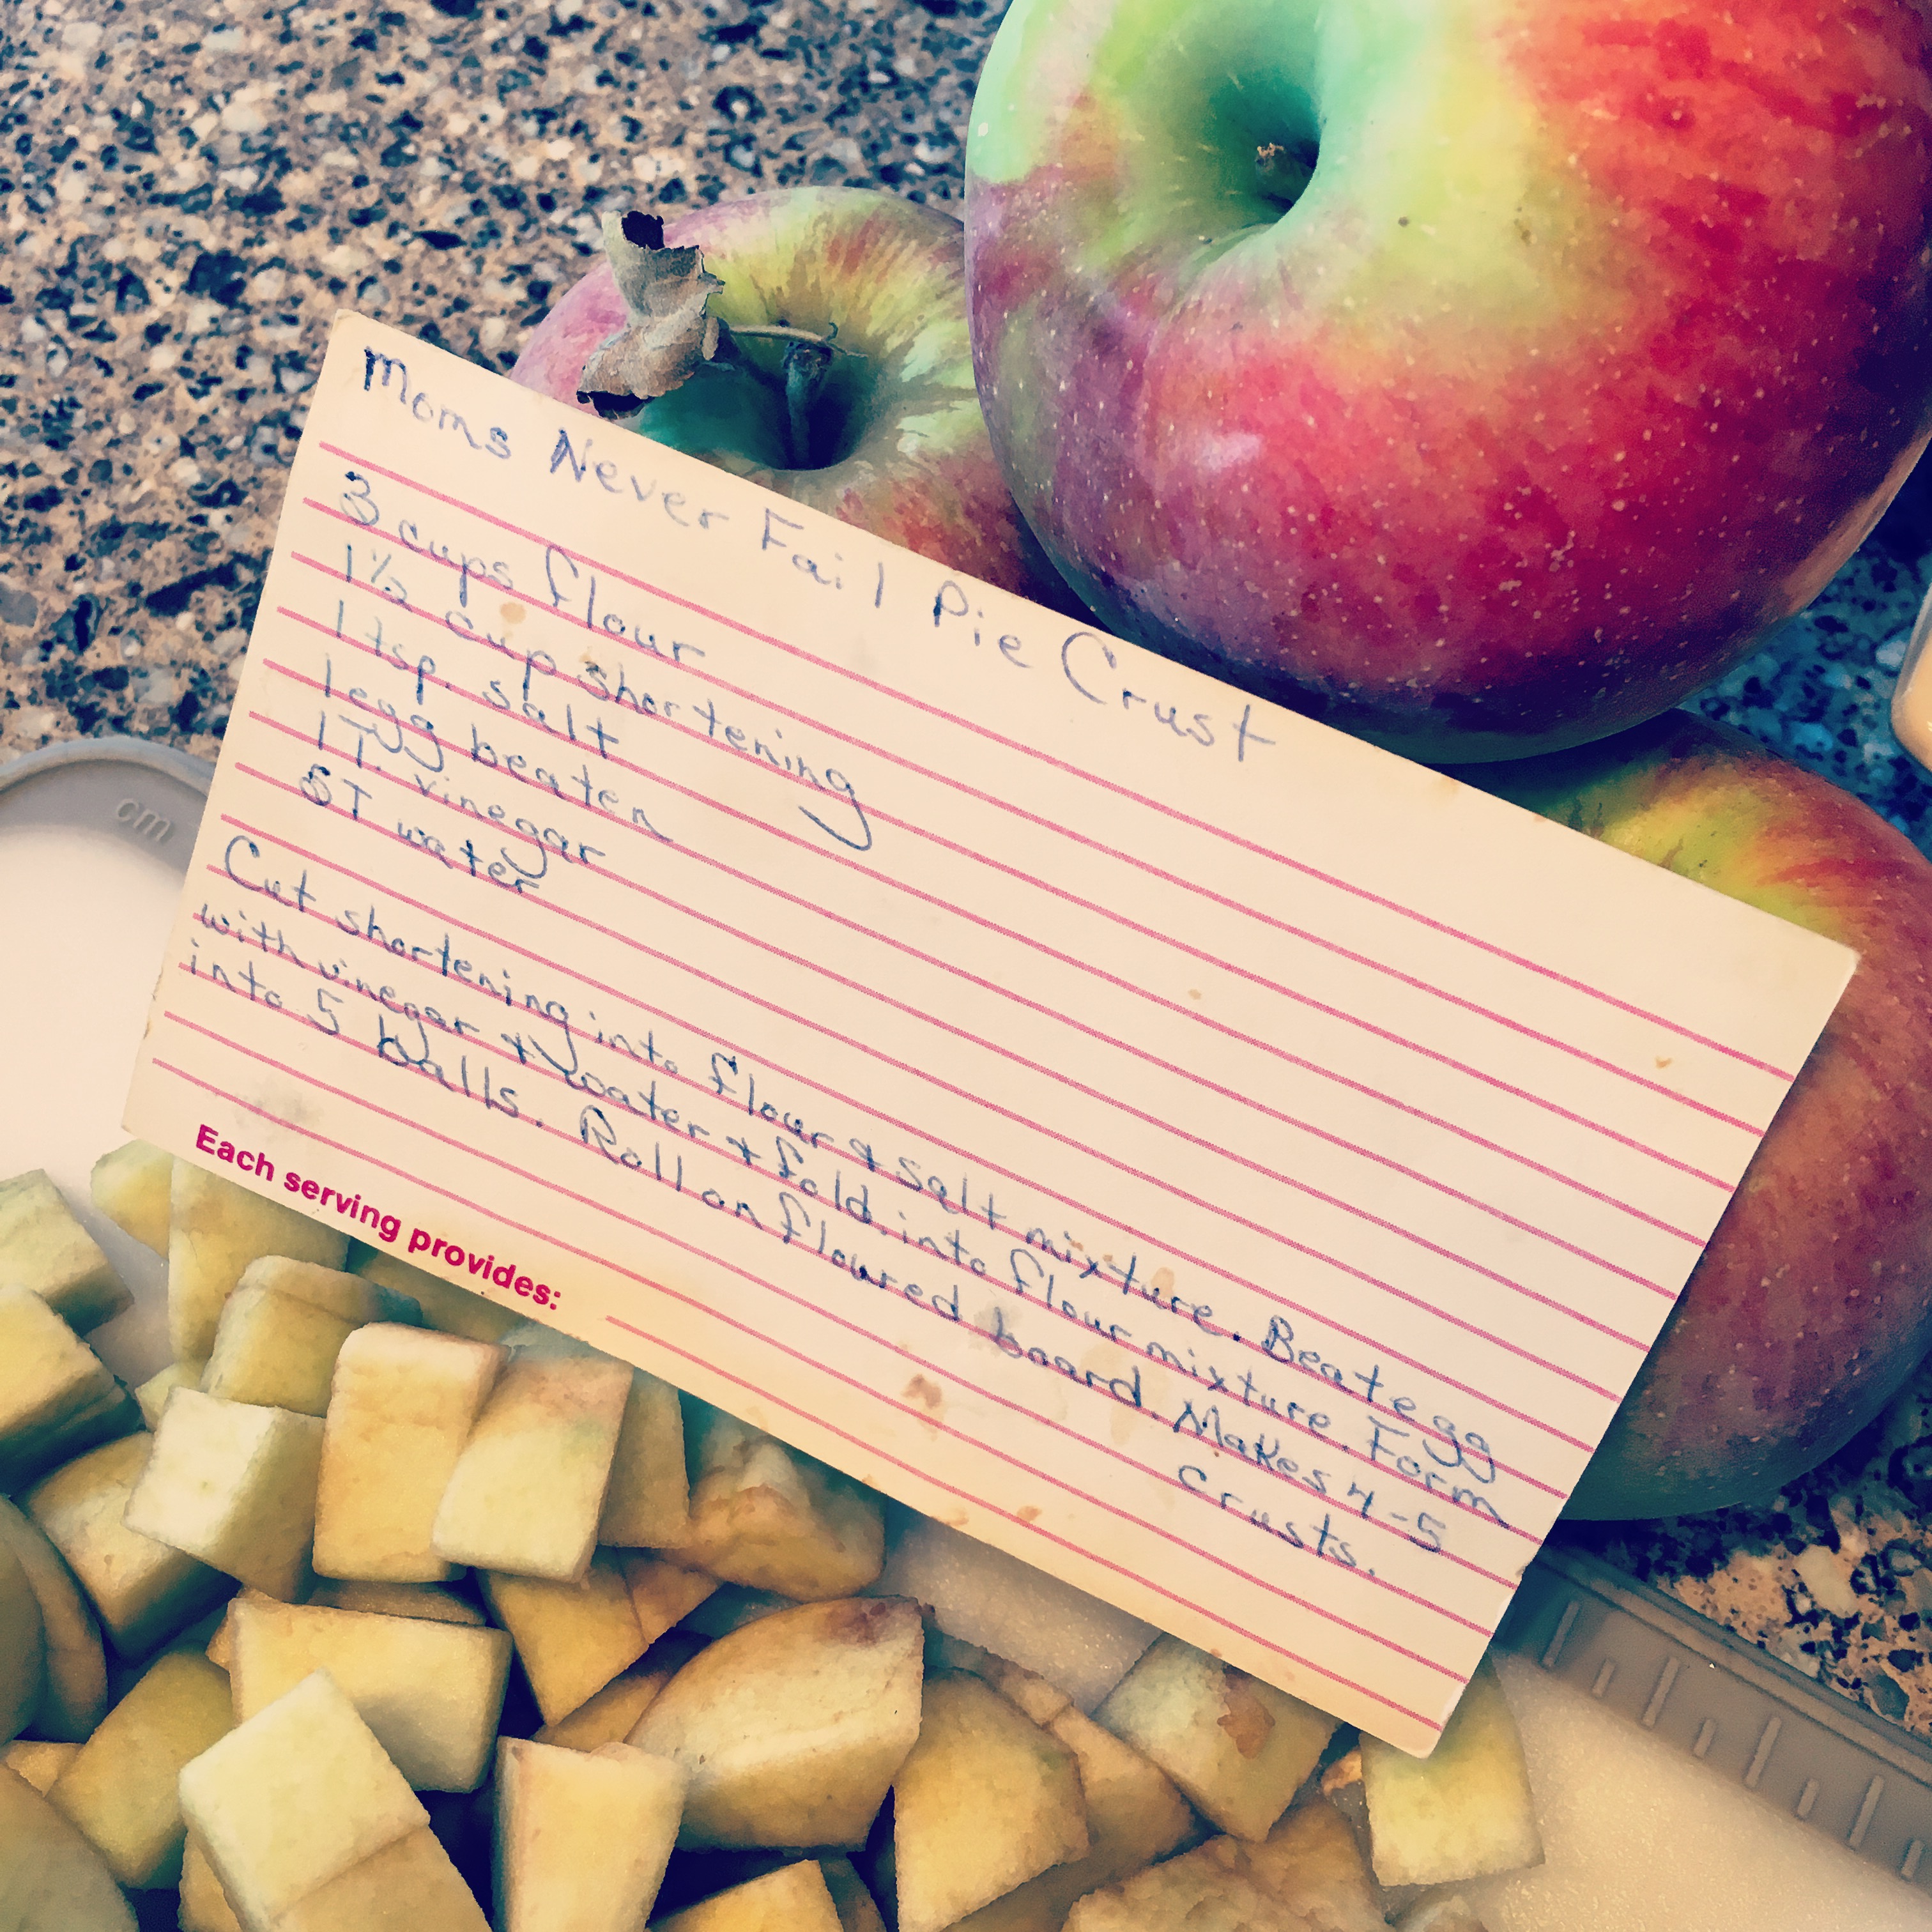 Moms Never Fail Pie Crust
3 cups flour
1½ cup shortening
1 tsp. salt
1 egg beaten
1 T. vinegar
5T water
Cut shortening into flour & salt mixture. Beat egg
with vinegar & water & fold into flour mixture. Form
into 5 balls. Roll on floured board. Makes 4-5
crusts.
Each serving provides:
cm